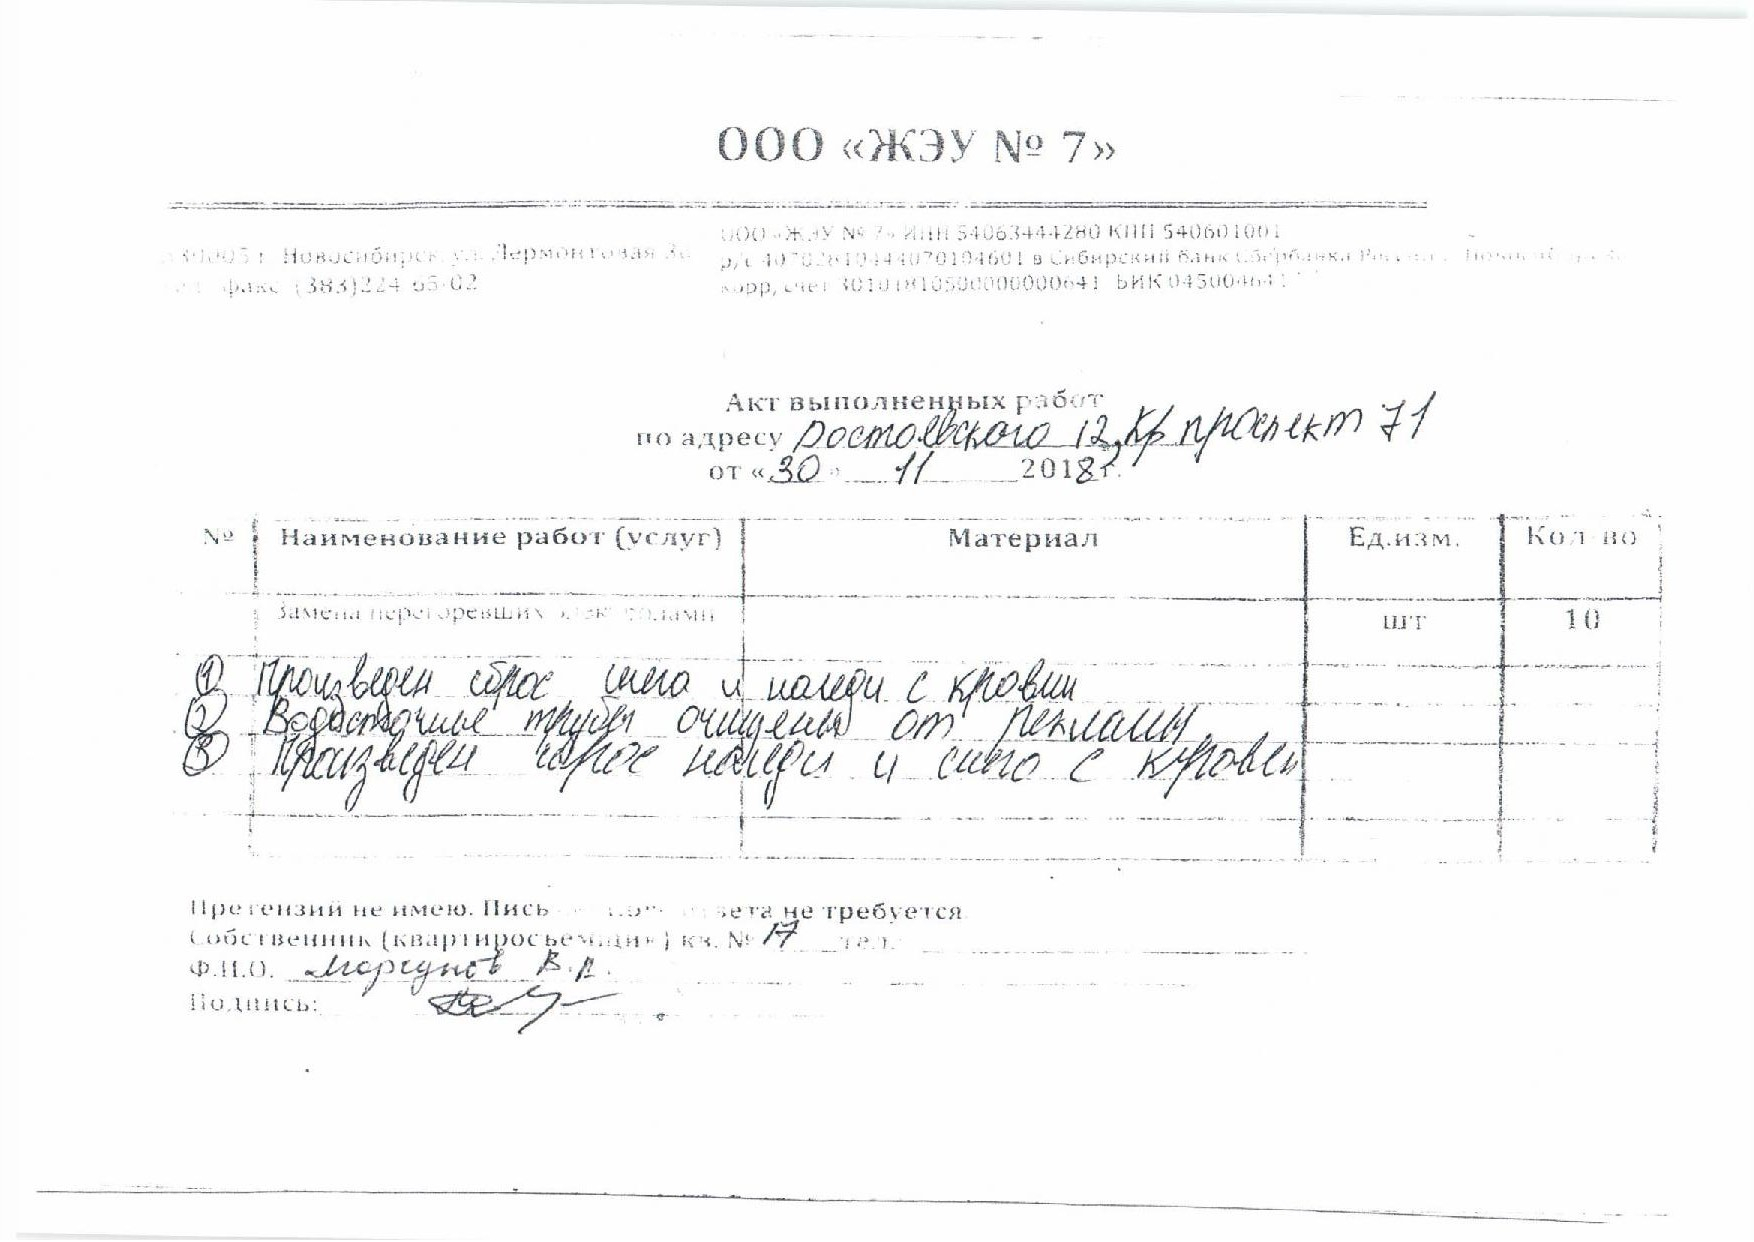 ООО «ЖЭУ № 7»
г. Новосибирск, ул. Лермонтовая
факс (383)224-65-02
ООО «ЖЭУ № 7» ИНН 54063444280 КПП 540601001
р/с 40702810444070104601 в Сибирский банк Сбербанка
корр, счет 30101810500000000641 БИК 045004641
Акт выполненных работ
по адресу Достоевского 12, Кр проспект 71
от «30» 11 2018г.
№ Наименование работ (услуг) Материал Ед.изм. Кол-во
Замена перегоревших шт 10
1 Произведен сброс снега и наледи с кровли
2 Водосточные трубы очищены от рекламы.
3 Произведен сброс наледи и снега с кровли
Претензий не имею. Пись ответа не требуется
Собственник (квартиросъемщик) кв. № 17 тел.
Ф.И.О. Моргунов В.А.
Подпись: